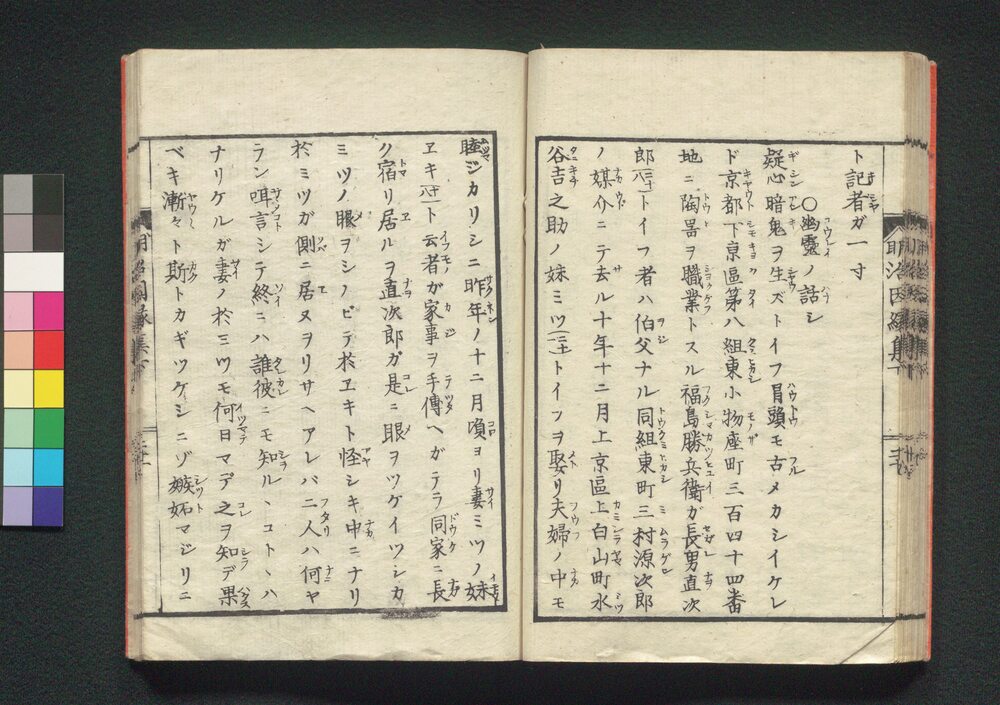 ト記者ガ一寸
○幽靈ノ話シ
疑心暗鬼ヲ生ズトイフ冒頭モ古メカシイケレ
ド京都下京區第八組東小物座町三百四十四番
地ニ陶噐ヲ職業トスル福島勝兵衛ガ長男直次
郎トイフ者ハ伯父ナル同組東町三村源次郎
ノ媒介ニテ去ル十年十二月上京區上白山町水
谷吉之助ノ妹ミツトイフヲ娶リ夫婦ノ中モ
睦ジカリシニ昨年ノ十二月頃ヨリ妻ミツノ妹
ヱキト云者が家事ヲ手傳ヘガテラ同家ニ長
ク宿リ居ルヲ直次郎ガ是ニ眼ヲツケイツシカ
ミツノ眼ヲシノビテ於ヱキト怪シキ中ニナリ
於ミツガ側ニ居ヌヲリサヘアレバ二人ハ何ヤ
ラン咡言シテ終ニハ誰彼ニモ知ルヽコトヽハ
ナリケルガ妻ノ於ミツモ何日マデ之ヲ知デ果
ベキ漸々ト斯トカギツケシニゾ嫉妬マジリニ